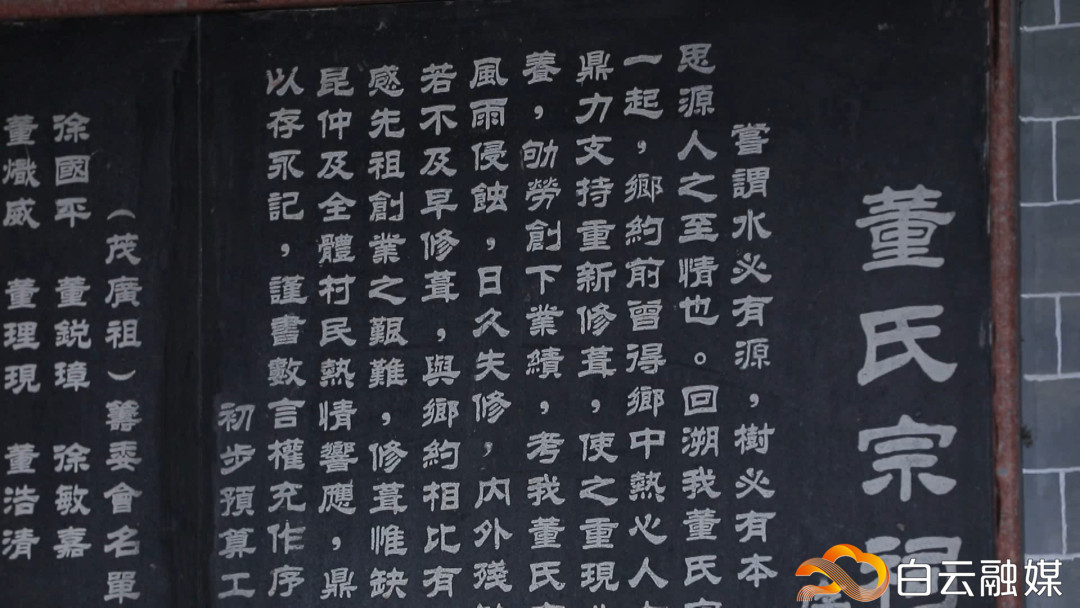 董氏宗祠
嘗謂水必有源，樹必有本
思源人之至情也。回溯我董氏宗
一起，鄉約前曾得鄉中熱心人
鼎力支持重新修葺，使之重現
養，劬勞創下業績，考我董氏
風雨侵蝕，日久失修，內外殘
若不及早修葺，與鄉約相比有
感先祖創業之艱難，修葺惟缺
昆仲及全體村民熱情響應，鼎
以存永記，謹書數言權充作序
初步預算工
（茂廣祖）籌委會名單
徐國平 董銳璋 徐敏嘉
董熾威 董理現 董浩清
白云融媒